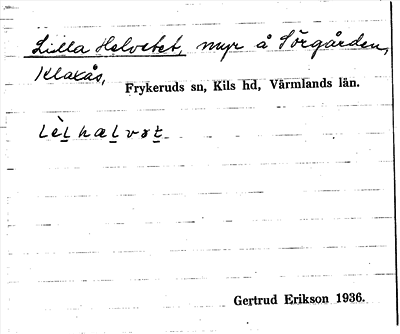 Lilla Helvetet, myr å Sörgården,
Klaxås,
Frykeruds sn, Kils hd, Värmlands län.
Gertrud Erikson 1936.